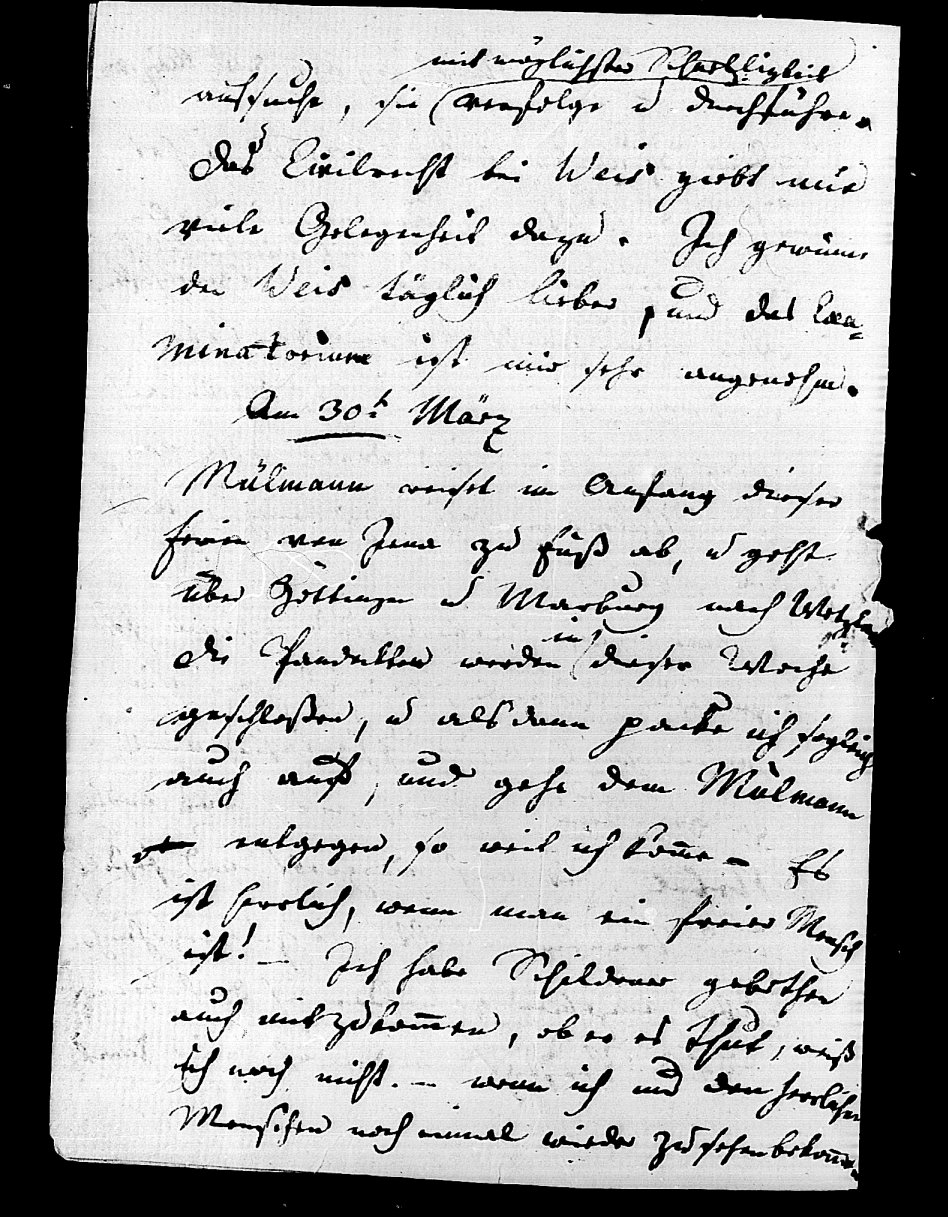 mit möglichster
aufsuche, sie verfolge u durchführe.
Das Civilrecht bei Weis giebt mir
viele Gelegenheit dazu. Ich gewinne
den Weis täglich lieber, und das Exa-
minatorium ist mir sehr angenehm.
Am 30t März
Mülmann reiset im Anfang dieser
Ferien von Jena zu Fuß ab, u geht
über Göttingen u Marburg nach Wetzlar
in
Die Pandekten werden dieser Woche
geschloßen, u alsdann packe ich sogleich
auch auf, und gehe dem Mülmann
entgegen, so weit ich komme – Es
ist herrlich, wenn man ein freier Mensch
ist! – Ich habe Schildener gebethen
auch mitzukommen, ob er es thut, weiß
ich noch nicht. – wenn ich nur den herrlichen
Menschen noch einmal wieder zu sehen bekomme